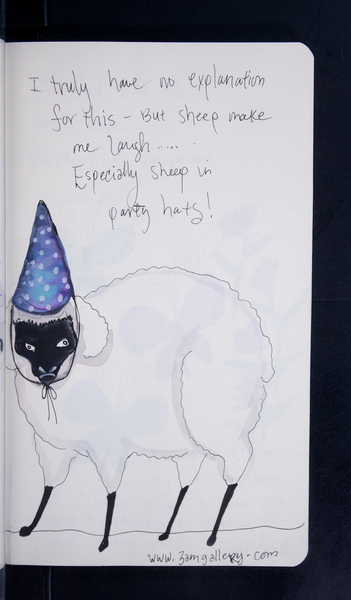 I truly have no explanation
for this - But sheep make
me laugh....
Especially sheep in
party hats!
www.3amgallery.com